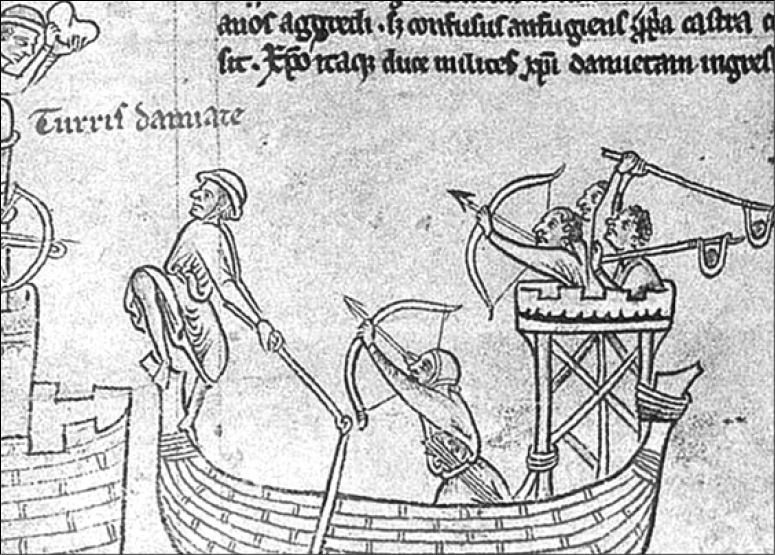 anos aggredi . sꝫ confusus aufugiens castra
sit . Xp̄o itaqꝫ duce milites xp̄i damietam ingres
Turris damiate